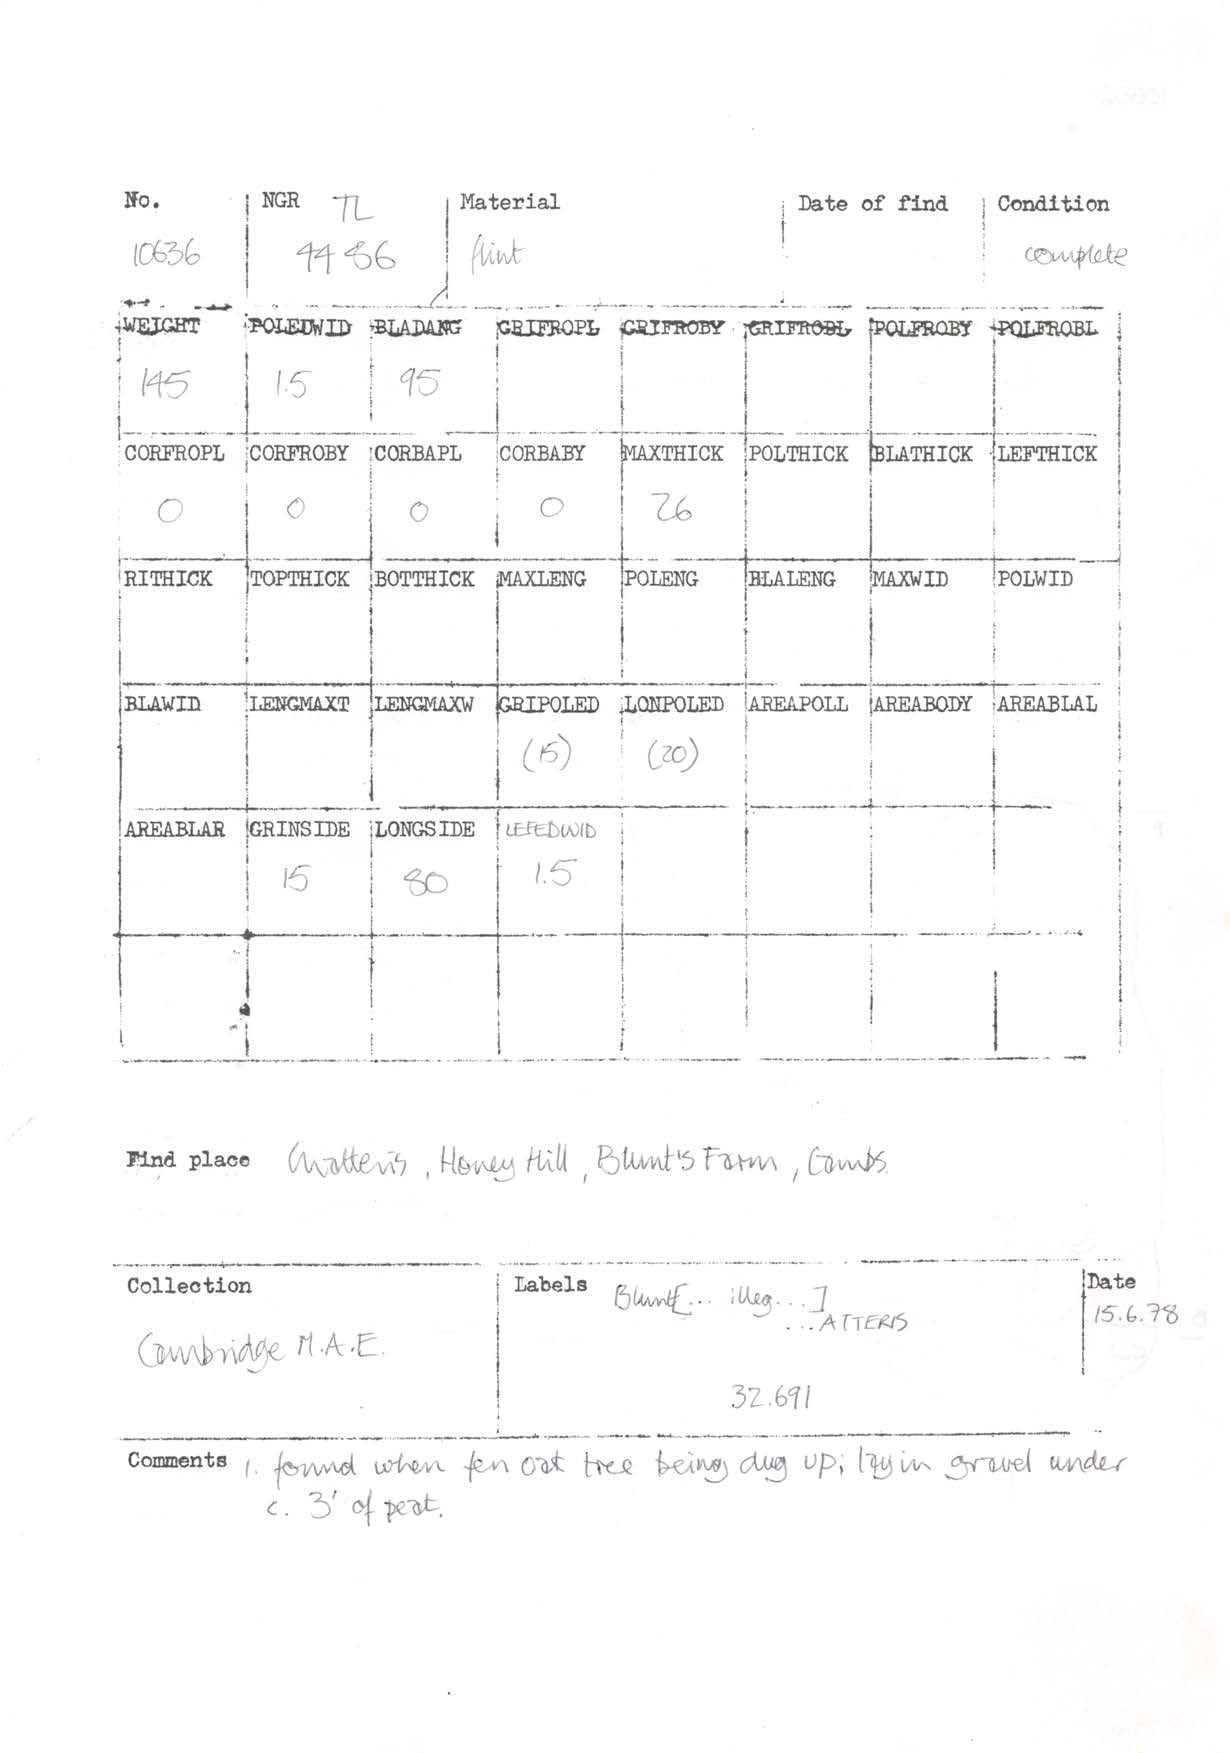 No. NGR TL Material Date of find Condition
10636 44 86 flint complete
WEIGHT POLEDWID BLADANG GRIFROPL GRIFROBY GRIFROBL POLFROBY POLFROBL
145 1.5 95
CORFROPL CORFROBY CORBAPL CORBABY MAXTHICK POLTHICK BLATHICK LEFTHICK
0 0 0 0 26
RITHICK TOPTHICK BOTTHICK MAXLENG POLENG BLALENG MAXWID POLWID
BLAWID LENGMAXT LENGMAXW GRIPOLED LONPOLED AREAPOLL AREABODY AREABLAL
(15) (20)
AREABLAR GRINSIDE LONGSIDE LEFEDWID
15 80 1.5
Find place Chatteris, Honey Hill, Blunt's Farm, Cambs.
Collection Labels Blunt[... illeg...] Date
...ATTERIS 15.6.78
Cambridge M.A.E.
32.691
Comments 1. found when fen oak tree being dug up; lay in gravel under
c. 3' of peat.